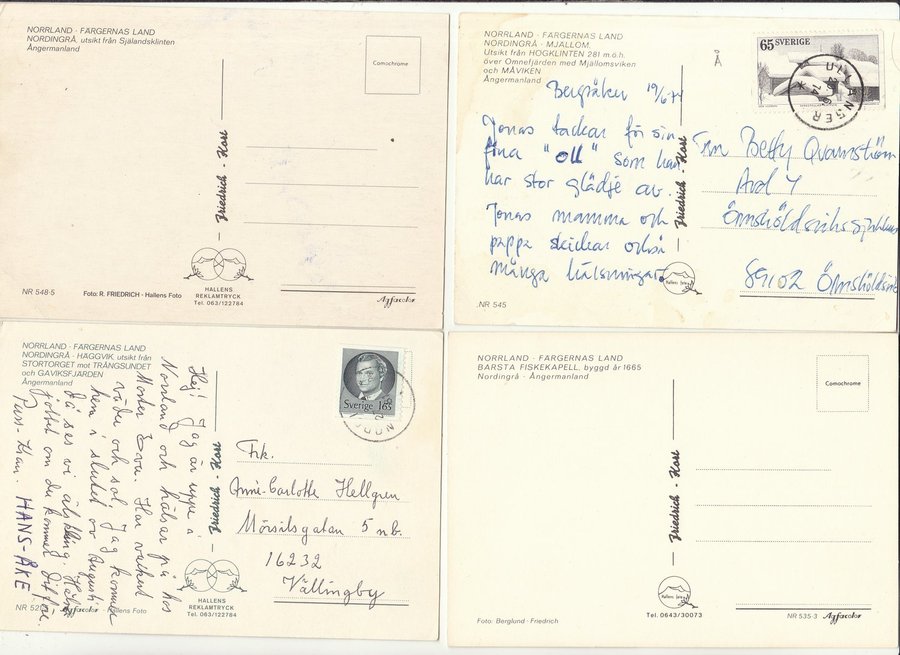 NORRLAND · FÄRGERNAS LAND
NORDINGRÅ, utsikt från Själandsklinten
Ångermanland
Comochrome
Friedrich · Karl
HALLENS
REKLAMTRYCK
Tel. 063/122784
NR 548-5
Foto: R. FRIEDRICH - Hallens Foto
Agfacolor
NORRLAND · FÄRGERNAS LAND
NORDINGRÅ · MJÄLLOM.
Utsikt från HÖGKLINTEN 281 m.ö.h.
över Omnefjärden med Mjällomsviken
och MÅVIKEN
Ångermanland
Å
65 SVERIGE
Bergsåker 19/6 74
Jonas tackar för sin
fina "oll" som han
har stor glädje av.
Jonas mamma och
pappa skickar också
många hälsningar
Friedrich · Karl
Betty Qvarnström
Avd 4
Örnsköldsviks sjukhus
89102 Örnsköldsvik
Hallens
NR 545
NORRLAND · FÄRGERNAS LAND
NORDINGRÅ · HÄGGVIK, utsikt från
STORTORGET mot TRÅNGSUNDET
och GAVIKSFJÄRDEN
Ångermanland
Sverige 165
Hej! Jag är uppe i
Norrland och hälsar på hos
Moster Eva. Har vackert
väder och sol. Jag kommer
hem i slutet av Augusti
då ses vi älskling.
jättet om du kommer dit före.
Puss-Kram. HANS-ÅKE
Friedrich · Karl
Frk.
Anne-Carlotte Hellgren
Mörsilsgatan 5 nb.
16232
Vällingby
HALLENS
REKLAMTRYCK
Tel. 063/122784
NR 52
Agfacolor
Hallens Foto
NORRLAND · FÄRGERNAS LAND
BARSTA FISKEKAPELL, byggd år 1665
Nordingrå · Ångermanland
Comochrome
Friedrich · Karl
Hallens
Tel. 0643/30073
Foto: Berglund - Friedrich
NR 535-3
Agfacolor